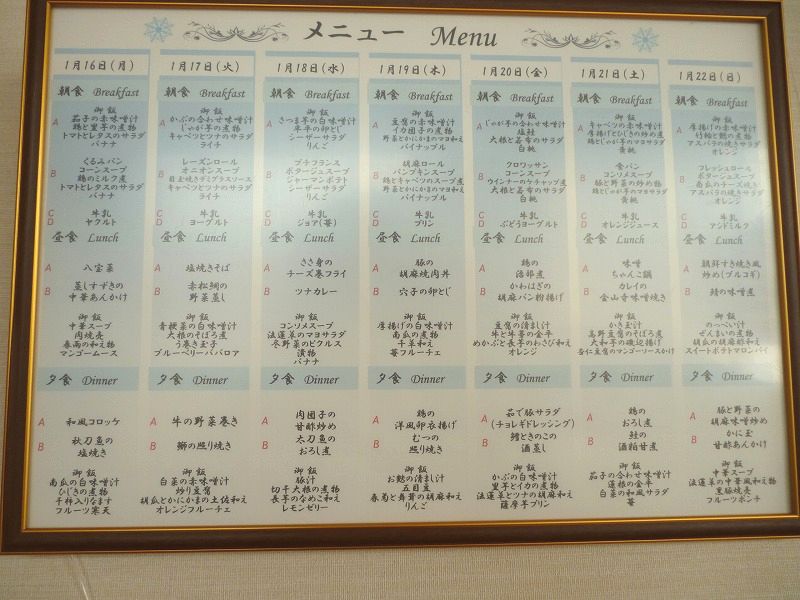 メニュー Menu
1月16日(月)
朝食 Breakfast
御飯
A 茄子の赤味噌汁
鶏と里芋の煮物
トマトとレタスのサラダ
バナナ
くるみパン
B コーンスープ
鶏のミルク煮
トマトとレタスのサラダ
バナナ
C 牛乳
D ヤクルト
昼食 Lunch
A 八宝菜
B 蒸しすずきの
中華あんかけ
御飯
中華スープ
肉焼売
春雨の和え物
マンゴームース
夕食 Dinner
A 和風コロッケ
B 秋刀魚の
塩焼き
御飯
南瓜の白味噌汁
ひじきの煮物
フルーツ寒天
1月17日(火)
朝食 Breakfast
御飯
A かぶの合わせ味噌汁
じゃが芋の煮物
キャベツとツナのサラダ
ライチ
レーズンロール
B オニオンスープ
目玉焼きデミグラスソース
キャベツとツナのサラダ
ライチ
C 牛乳
D ヨーグルト
昼食 Lunch
A 塩焼きそば
B 赤松鯛の
野菜蒸し
御飯
青梗菜の白味噌汁
大根のそぼろ煮
う巻き玉子
ブルーベリーババロア
夕食 Dinner
A 牛の野菜巻き
B 鰤の照り焼き
御飯
白菜の赤味噌汁
炒り豆腐
胡瓜とかにかまの土佐和え
オレンジフルーチェ
1月18日(水)
朝食 Breakfast
御飯
A さつま芋の白味噌汁
半平の卵とじ
シーザーサラダ
りんご
プチフランス
B ポタージュスープ
ジャーマンポテト
シーザーサラダ
りんご
C 牛乳
D ジョア(苺)
昼食 Lunch
A ささ身の
チーズ巻フライ
B ツナカレー
御飯
コンソメスープ
法蓮草のマヨサラダ
冬野菜のピクルス
漬物
バナナ
夕食 Dinner
A 肉団子の
甘酢炒め
B 太刀魚の
おろし煮
御飯
豚汁
切干大根の煮物
長芋のなめこ和え
レモンゼリー
1月19日(木)
朝食 Breakfast
御飯
A 豆腐の赤味噌汁
イカ団子の煮物
野菜とかにかまのマヨ和え
パイナップル
胡麻ロール
B パンプキンスープ
キャベツとツナのスープ煮
野菜とかにかまのマヨ和え
パイナップル
C 牛乳
D プリン
昼食 Lunch
A 豚の
胡麻焼肉丼
B 穴子の卵とじ
御飯
厚揚げの白味噌汁
南瓜の煮物
干草和え
苺フルーチェ
夕食 Dinner
A 鶏の
洋風卵衣揚げ
B むつの
照り焼き
御飯
お麩の清まし汁
五目豆
春菊と舞茸の胡麻和え
りんご
1月20日(金)
朝食 Breakfast
御飯
A じゃが芋の合わせ味噌汁
塩鮭
大根と若布のサラダ
白桃
クロワッサン
B コーンスープ
ウインナーのケチャップ煮
大根と若布のサラダ
白桃
C 牛乳
D ぶどうヨーグルト
昼食 Lunch
A 鶏の
治部煮
B かわはぎの
胡麻パン粉揚げ
御飯
豆腐の清まし汁
牛と牛蒡の金平
めかぶと長芋のわさび和え
オレンジ
夕食 Dinner
A 茹で豚サラダ
(チョレギドレッシング)
B 鱈ときのこの
酒蒸し
御飯
かぶの白味噌汁
里芋とイカの煮物
法蓮草とツナの胡麻和え
薩摩芋プリン
1月21日(土)
朝食 Breakfast
御飯
A キャベツの赤味噌汁
厚揚げとひじきの炒め煮
鶏とじゃが芋のマヨサラダ
黄桃
食パン
B コンソメスープ
豚と野菜の炒め物
鶏とじゃが芋のマヨサラダ
黄桃
C 牛乳
D オレンジジュース
昼食 Lunch
A 味噌
ちゃんこ鍋
B カレイの
金山寺味噌焼き
御飯
かき玉汁
高野豆腐のそぼろ煮
大和芋の磯辺揚げ
杏仁豆腐のマンゴーソースかけ
夕食 Dinner
A 鶏の
おろし煮
B 鮭の
酒粕甘煮
御飯
茄子の合わせ味噌汁
蓮根の金平
白菜の和風サラダ
苺
1月22日(日)
朝食 Breakfast
御飯
A 厚揚げの赤味噌汁
竹輪と麩の煮物
アスパラの焼きサラダ
オレンジ
フレッシュロース
B ポタージュスープ
南瓜のチーズ焼き
アスパラの焼きサラダ
オレンジ
C 牛乳
D アシドミルク
昼食 Lunch
A 朝鮮すき焼き風
炒め(プルコギ)
B 鯖の味噌煮
御飯
のっぺい汁
ぜんまいの煮物
胡瓜の胡麻酢和え
スイートポテトマロンパイ
夕食 Dinner
A 豚と野菜の
胡麻味噌炒め
B かに玉
甘酢あんかけ
御飯
中華スープ
法蓮草の中華風和え物
黒豚焼売
フルーツポンチ